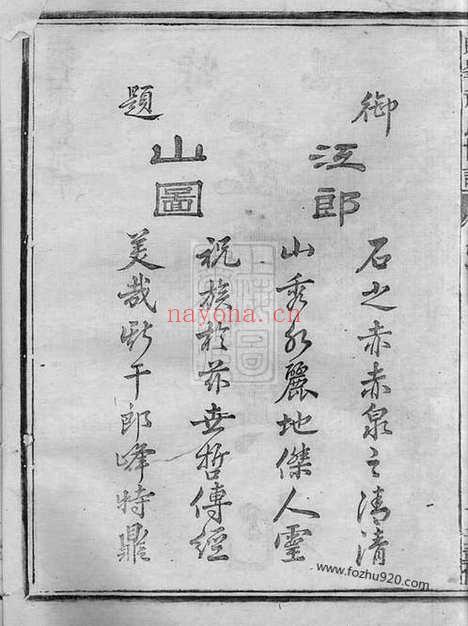 御
江郎
石之赤赤泉之清清
山秀水麗地傑人靈
祝族於茲世哲傳經
美哉斯干郎峰特鼎
題
山圖
nayona.cn
www.fozhu920.com